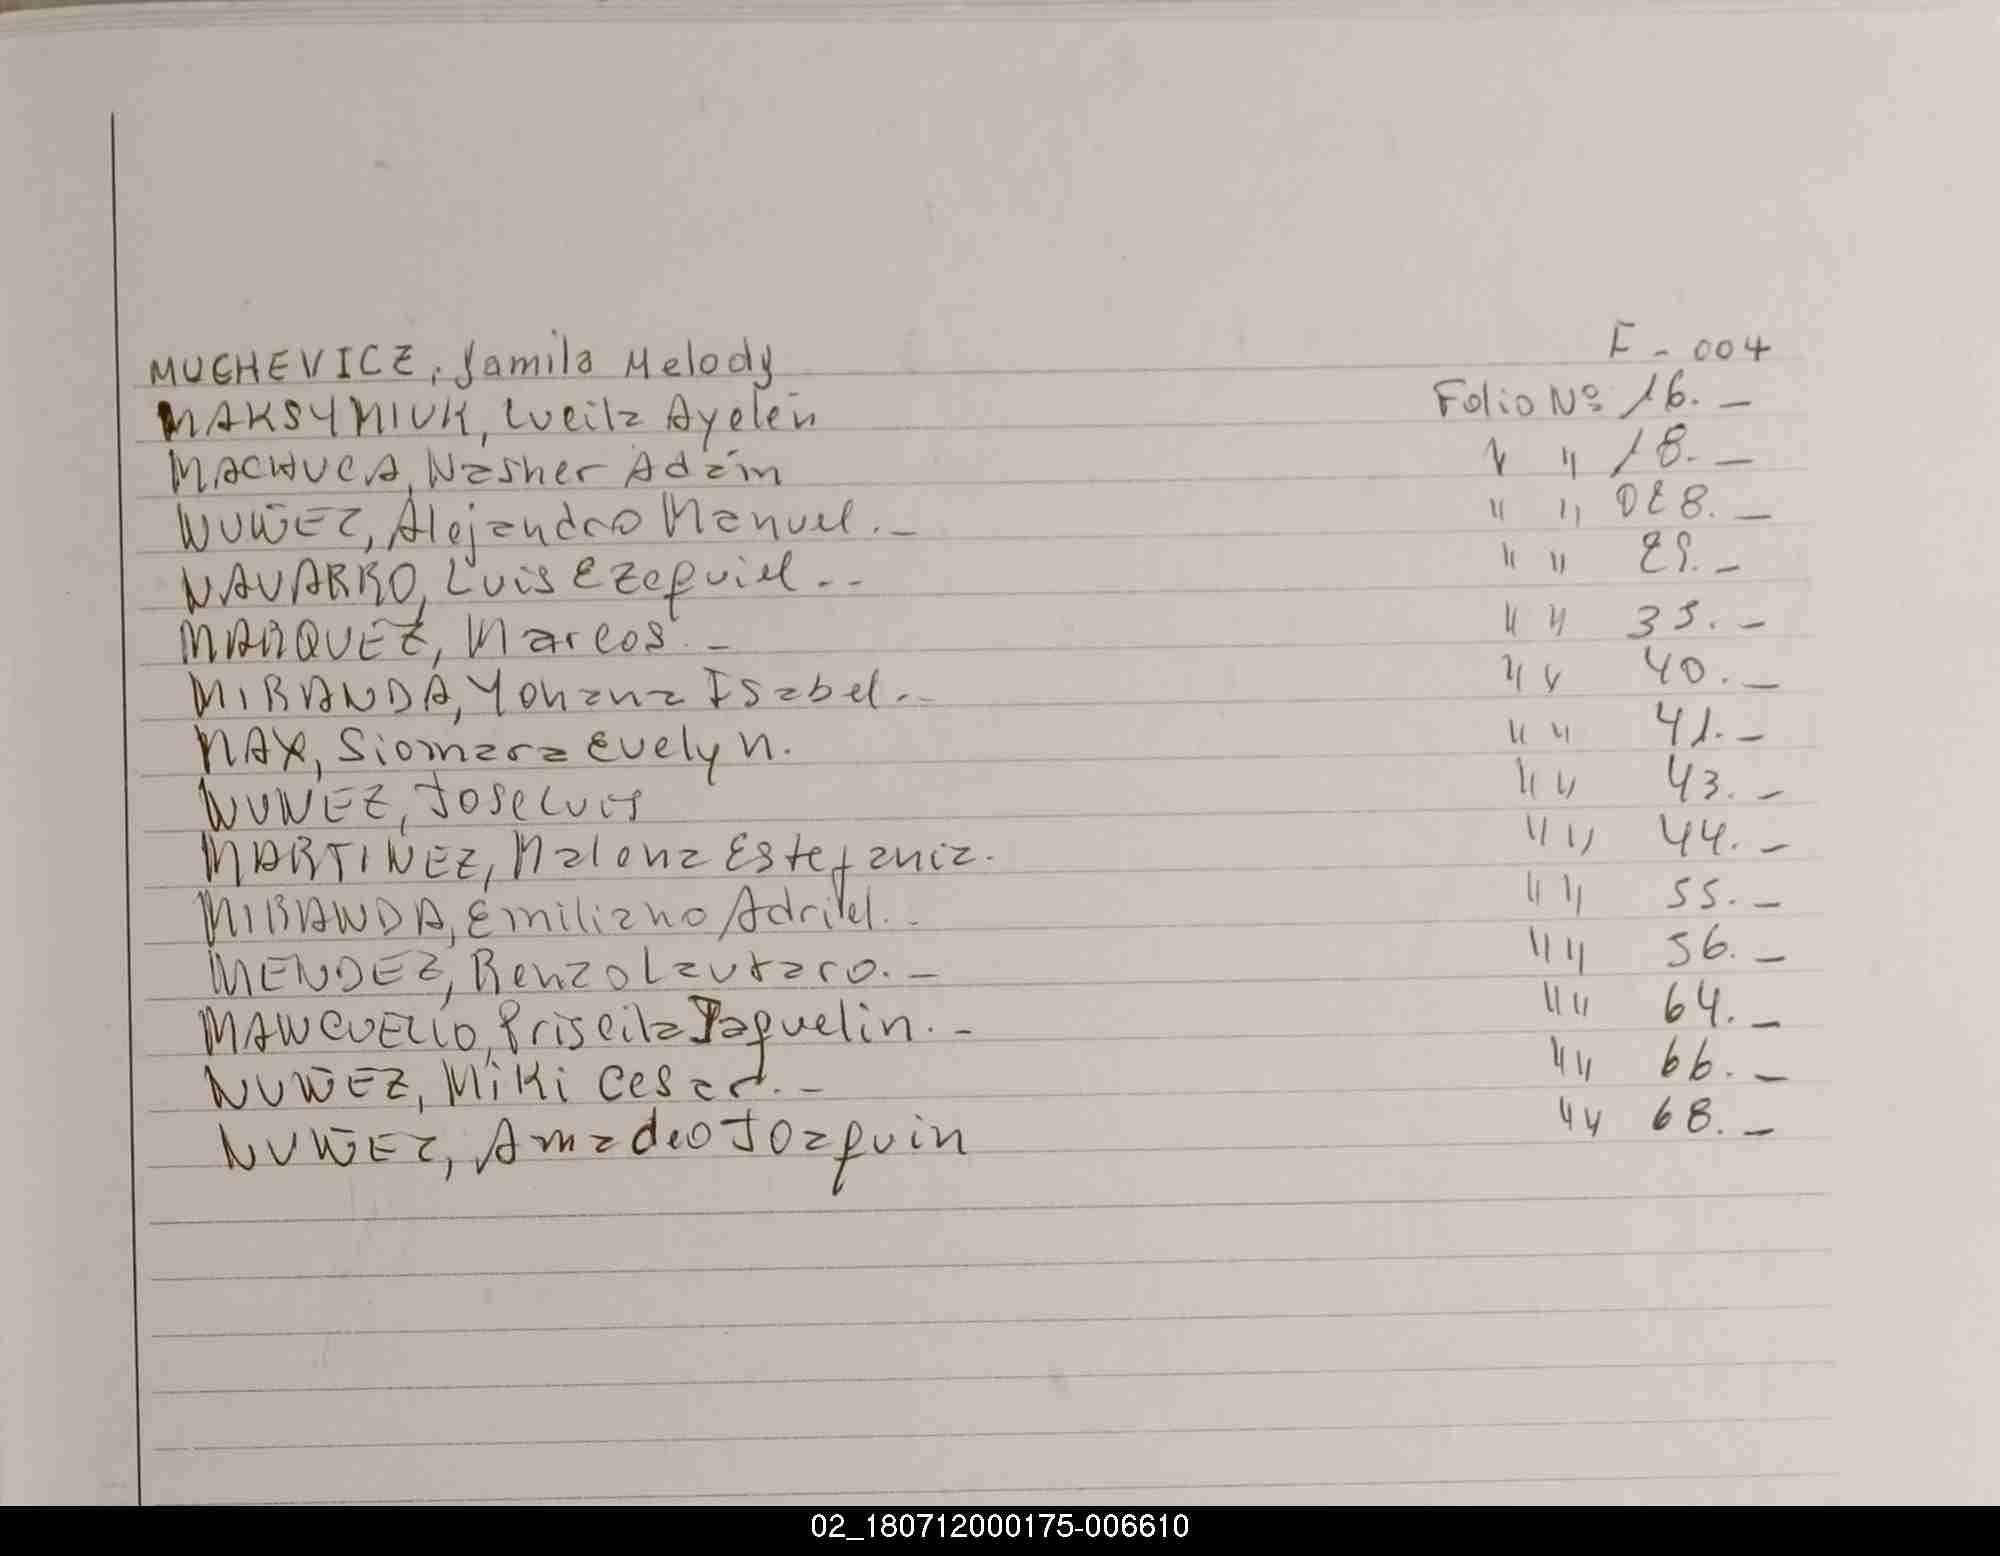 MUCHEVICZ, Jamila Melody F - 004
MAKSYMIUK, Lucila Ayelén Folio Nº 16. _
MACHUCA, Nasher Adaín " " 18. _
NUÑEZ, Alejandro Manuel. _ " " 028. _
NAVARRO, Luis Ezequiel. - - " " 29. _
MARQUEZ, Marcos. _ " " 33. _
MIRANDA, Yohana Isabel. - " " 40. _
MAX, Siomara Evelyn. " " 41. _
NUNEZ, Jose Luis " " 43. _
MARTINEZ, Malena Estefania. " " 44. _
MIRANDA, Emiliano Adriel. - " " 55. _
MENDEZ, Renzo Lautaro. _ " " 56. _
MANCUELLO, Priscila Jaquelin. - " " 64. _
NUÑEZ, Miki Cesar. _ " " 66. _
NUÑEZ, Amadeo Joaquin " " 68. _
02_180712000175-006610